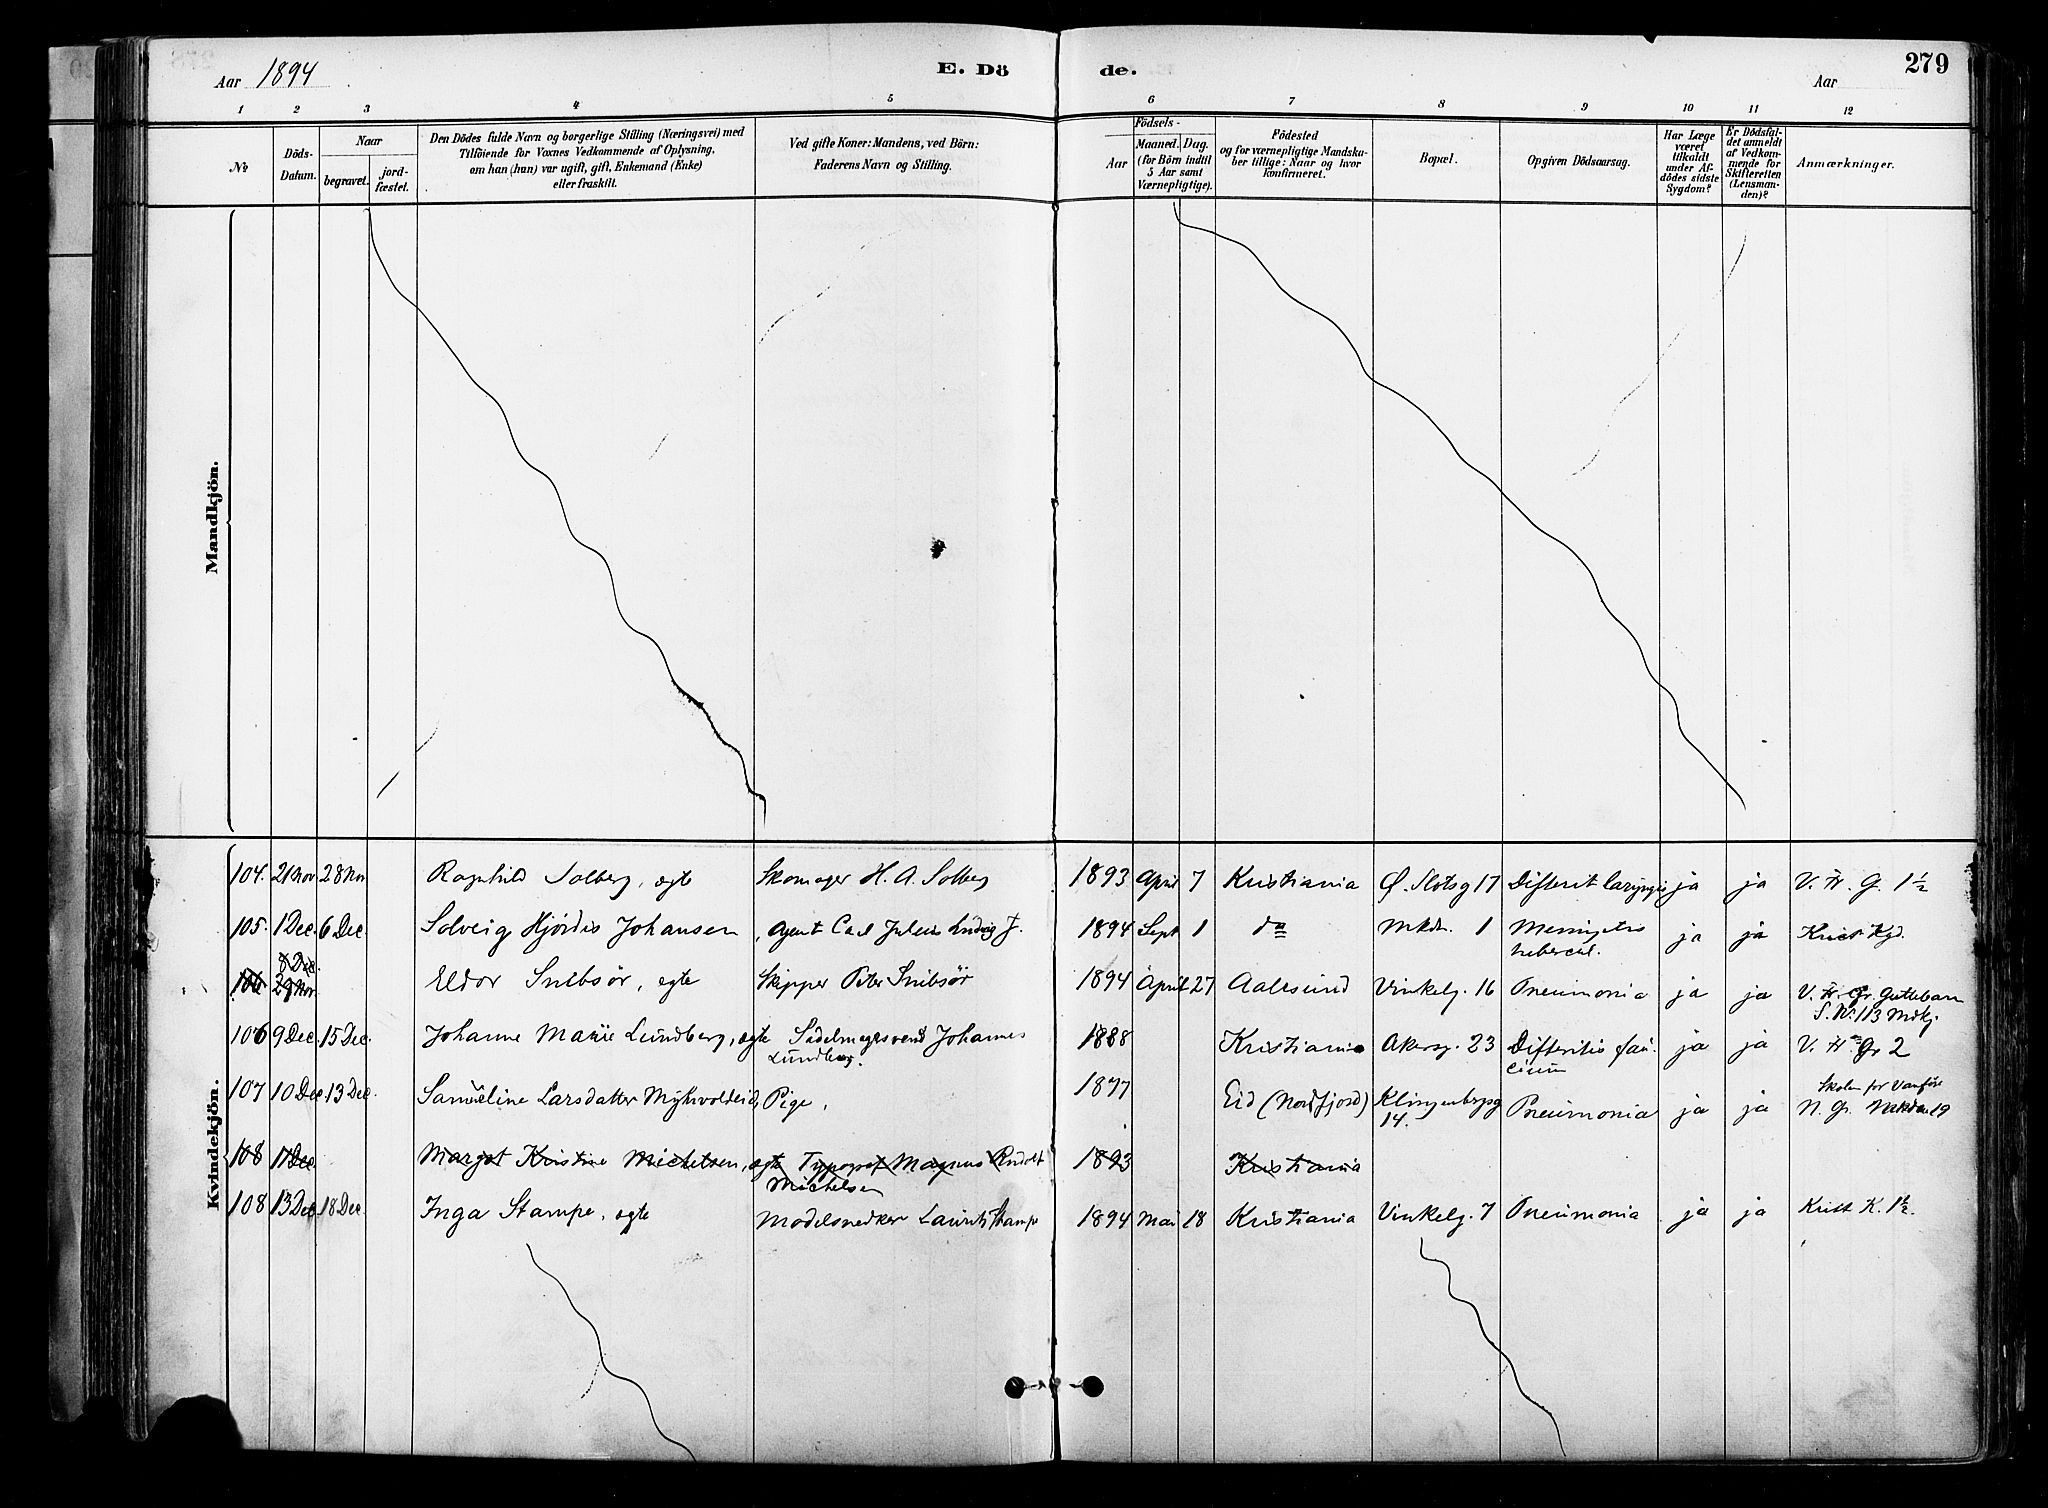 Aar 1894 E. Dö de. Aar 279
1 2 3 4 5 6 7 8 9 10 11 12
№ Döds-Datum. Naar begravet. jordfæstet. Den Dödes fulde Navn og borgerlige Stilling (Næringsvei) med Tilföiende for Voxnes Vedkommende af Oplysning, om han (hun) var ugift, gift, Enkemand (Enke) eller fraskilt. Ved gifte Koner: Mandens, ved Börn: Faderens Navn og Stilling. Födsels- Aar Maaned. Dag. (for Börn indtil 5 Aar samt Værnepligtige). Födested og for værnepligtige Mandskaber tillige: Naar og hvor konfirmeret. Bopæl. Opgiven Dödsaarsag. Har Læge været tilkaldt under Afdödes sidste Sygdom? Er Dödsfaldet anmeldt af Vedkommende for Skifteretten (Lensmanden)? Anmærkninger.
Mandkjön.
Kvindekjön.
104. 21 Nov 28 Nov Ragnhild Solberg, egte Skomager H. A. Solberg 1893 April 7 Kristiania Ø. Slotsg 17 Difterit laryngis ja ja V. Fr. G. 1½
105. 1 Dec. 6 Dec. Solveig Hjördis Johansen, Agent Carl Julius Ludvig J. 1894 Sept 1 do Mkdn. 1 Meningitis tubercul. ja ja Krist. Kgd.
8 Dec.
106 29 Nov. Eldor Sulbsör, egte Skipper Peter Sulbsör 1894 April 27 Aalesund Vinkelg. 16 Pneumonia ja ja V. Fr. Gr. Guttebarn
S. N. 113 Mdkj.
106 9 Dec. 15 Dec. Johanne Marie Lundberg, egte Sadelmagersvend Johannes Lundberg. 1888 Kristiania Akersg. 23 Difteritis faucium ja ja V. Fr. Gr 2
107 10 Dec. 13 Dec. Samueline Larsdatter Myklvoldeid, Pige, 1877 Eid (Nordfjord) Klingenbergg 14. Pneumonia ja ja Skolen for Vanföre
N. Gr. Mkdn 19
108 11 Dec. Margot Kristine Michelsen, egte Typograf Magnus Rudolf Michelsen 1893 Kristiania
108 13 Dec. 18 Dec. Inga Stampe, egte Modelsnedker Lauritz Stampe 1894 Mai 18 Kristiania Vinkelg. 7 Pneumonia ja ja Krist K. 1½.